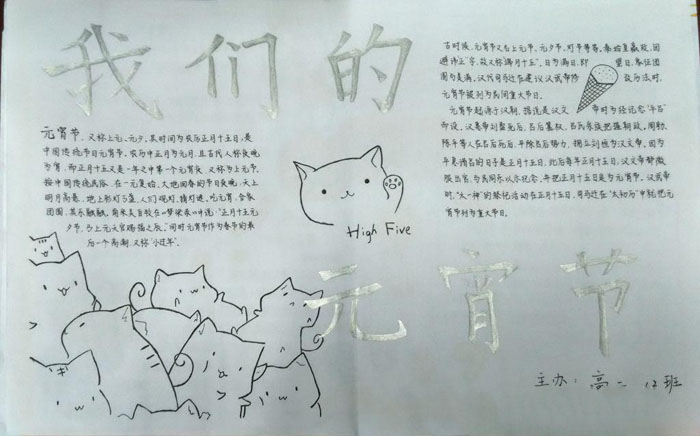 我们的
元宵节,又称上元、元夕,其时间为农历正月十五日,是
中国传统节日元宵节。农历中正月为元月,且古代人称夜晚
为宵,而正月十五又是一年之中第一个元宵夜,又称为上元节,
按中国传统民俗,在一元复始,大地回春的节日夜晚,天上
明月高悬,地上彩灯万盏,人们观灯,猜灯谜,吃元宵,合家
团圆,其乐融融。南宋吴自牧在《梦梁录》中说:“正月十五元
夕节,乃上元天官赐福之辰。”同时元宵节作为春节的最
后一个高潮,又称“小过年”。
古时候,元宵节又名上元节、元夕节、灯节等等,秦始皇嬴政,因
避讳正字,故又称端月十五,日为满日,即 望日,象征团
圆与美满,汉代司马迁建议汉武帝修 改历法时,
元宵节被列为民间重大节日。
元宵节起源于汉朝,据说是汉文 帝时为纪念“平吕”
而设,汉惠帝刘盈死后,吕后篡权,吕氏宗族把握朝政。周勃、
陈平等人在吕后死后,平除吕后势力,拥立刘恒为汉文帝,因为
平息诸吕的日子是正月十五日,此后每年正月十五日,汉文帝都微
服出宫,与民同乐以示纪念,并把正月十五日定为元宵节。汉武帝
时,“太一神”的祭祀活动在正月十五日,司马迁在“太初历”中就把元
宵节列为重大节日。
High Five
元宵节
主办:高二 12班